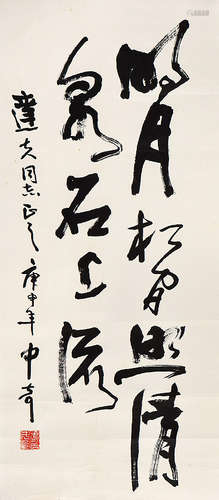 明月松间照清
泉石上流
达夫同志正之 庚申年 中奇